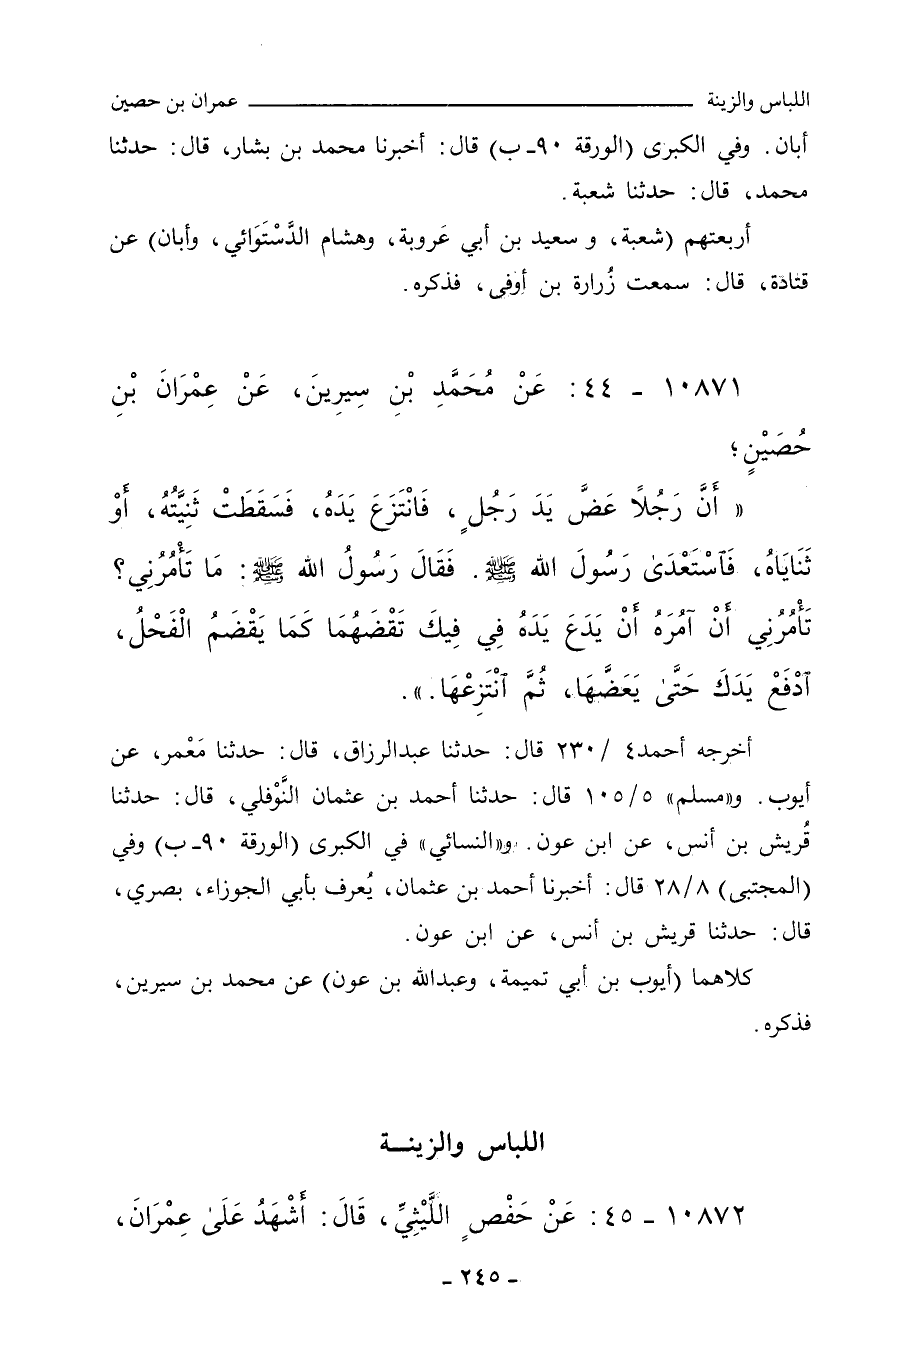 اللباس والزينة ــــــــــــــــــــ عمران بن حصين
أبان. وفي الكبرى (الورقة ٩٠ـ ب) قال: أخبرنا محمد بن بشار، قال: حدثنا
محمد، قال: حدثنا شعبة.
أربعتهم (شعبة، و سعيد بن أبي عَروبة، وهشام الدَّسْتَوَائي، وأبان) عن
قتادة، قال: سمعت زُرارة بن أوفى، فذكره.
١٠٨٧١ ـ ٤٤: عَنْ مُحَمَّدِ بْنِ سِيرِينَ، عَنْ عِمْرَانَ بْنِ
حُصَيْنٍ؛
« أَنَّ رَجُلاً عَضَّ يَدَ رَجُلٍ، فَانْتَزَعَ يَدَهُ، فَسَقَطَتْ ثَنِيَّتُهُ، أَوْ
ثَنَايَاهُ، فَٱسْتَعْدَىٰ رَسُولَ الله ﷺ. فَقَالَ رَسُولُ الله ﷺ: مَا تَأْمُرُنِي؟
تَأْمُرُنِي أَنْ آمُرَهُ أَنْ يَدَعَ يَدَهُ فِي فِيكَ تَقْضَهُمَا كَمَا يَقْضَمُ الْفَحْلُ،
ٱدْفَعْ يَدَكَ حَتَّىٰ يَعَضَّهَا، ثُمَّ ٱنْتَزِعْهَا.».
أخرجه أحمد٤ /٢٣٠ قال: حدثنا عبدالرزاق، قال: حدثنا مَعْمر، عن
أيوب. و«مسلم» ١٠٥/٥ قال: حدثنا أحمد بن عثمان النَّوْفلي، قال: حدثنا
قُريش بن أنس، عن ابن عون. و«النسائي» في الكبرى (الورقة ٩٠ـ ب) وفي
(المجتبى) ٢٨/٨ قال: أخبرنا أحمد بن عثمان، يُعرف بأبي الجوزاء، بصري،
قال: حدثنا قريش بن أنس، عن ابن عون.
كلاهما (أيوب بن أبي تميمة، وعبدالله بن عون) عن محمد بن سيرين،
فذكره.
اللباس والزينــة
١٠٨٧٢ ـ ٤٥: عَنْ حَفْصٍ اللَّيْثِيِّ، قَالَ: أَشْهَدُ عَلَىٰ عِمْرَانَ،
ـ ٢٤٥ ـ